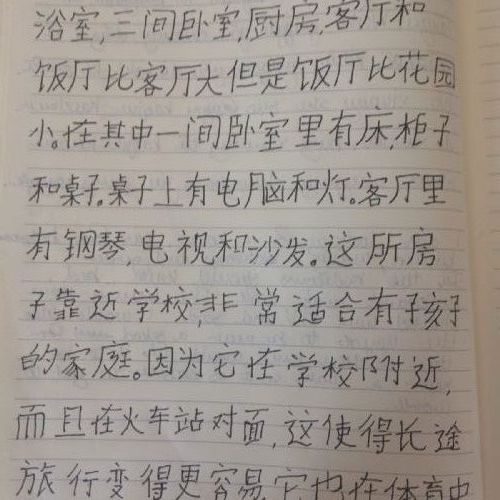 浴室,三间卧室,厨房,客厅和
饭厅比客厅大但是饭厅比花园
小。在其中一间卧室里有床,柜子
和桌子。桌子上有电脑和灯。客厅里
有钢琴,电视和沙发。这所房
子靠近学校,非常适合有孩子
的家庭。因为它在学校附近,
而且在火车站对面,这使得长途
旅行变得更容易,它也在体育中